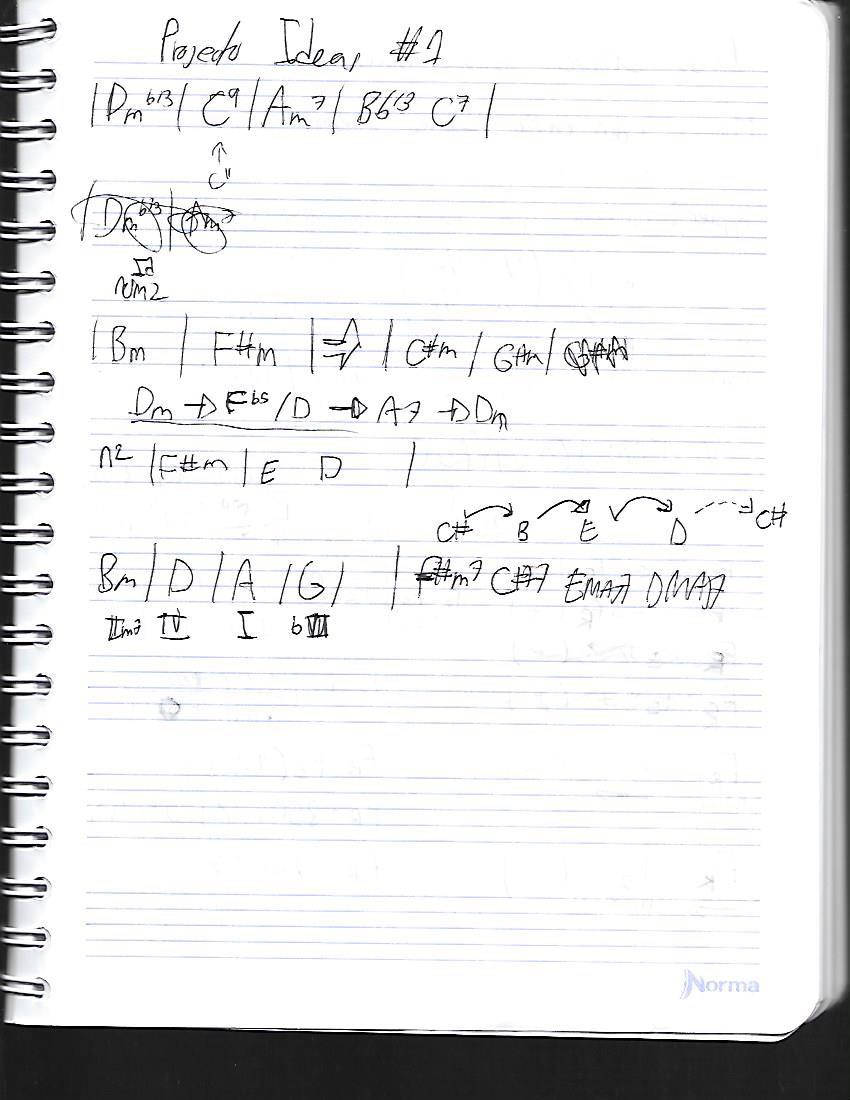 Projecto Ideas #1
|Dm b13| C9 |Am7| Bb13 C7 |
↑
C11
|Dm b13| Am7
Id
Núm2
|Bm | F#m |⇒| C#m / G#m |
Dm → Fb5/D → A7 → Dm
n2 |F#m| E D |
C# B E D C#
Bm | D | A | G | | F#m7 C#7 EMA7 DMA7
IIm7 IV I bVII
Norma